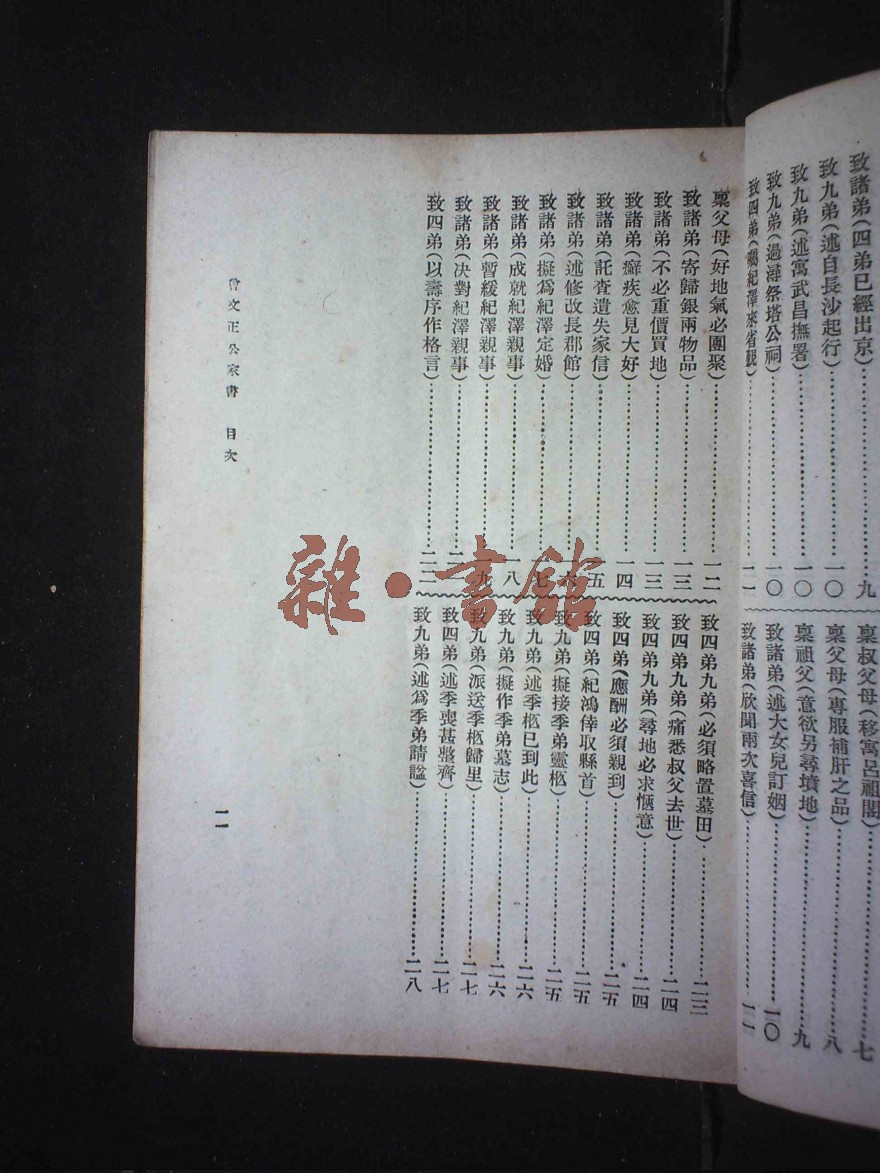 致諸弟(四弟已經出京)……九
致九弟(述自長沙起行)……一〇
致九弟(述寓武昌撫署)……一〇
致九弟(過潯祭塔公祠)……一〇
致四弟(囑紀澤來省覲)……一一
稟叔父母(移寓呂祖閣)……七
稟父母(專服補肝之品)……八
稟祖父(意欲另尋墳地)……九
致諸弟(述大女兒訂姻)……一〇
致諸弟(欣聞兩次喜信)……一一
稟父母(好地氣必團聚)……一二
致諸弟(寄歸銀兩物品)……一三
致諸弟(不必重價買地)……一三
致諸弟(癬疾愈見大好)……一四
致諸弟(託查遺失家信)……一五
致諸弟(述修改長郡館)……一六
致諸弟(擬為紀澤定婚)……一七
致諸弟(成就紀澤親事)……一八
致諸弟(暫緩紀澤親事)……一九
致諸弟(決對紀澤親事)
致四弟(以壽序作格言)……二二
致四弟九弟(必須略置墓田)……二三
致四弟九弟(痛悉叔父去世)……二四
致四弟九弟(尋地必求愜意)……二四
致四弟(應酬必須親到)……二五
致四弟(紀鴻倖取縣首)……二五
致九弟(擬接季弟靈柩)……二五
致九弟(述季柩已到此)……二六
致九弟(擬作季弟墓志)……二六
致九弟(派送季柩歸里)……二七
致四弟(述季喪甚整齊)……二七
致九弟(述為季弟請諡)……二八
曾文正公家書 目次
二
雜·書館